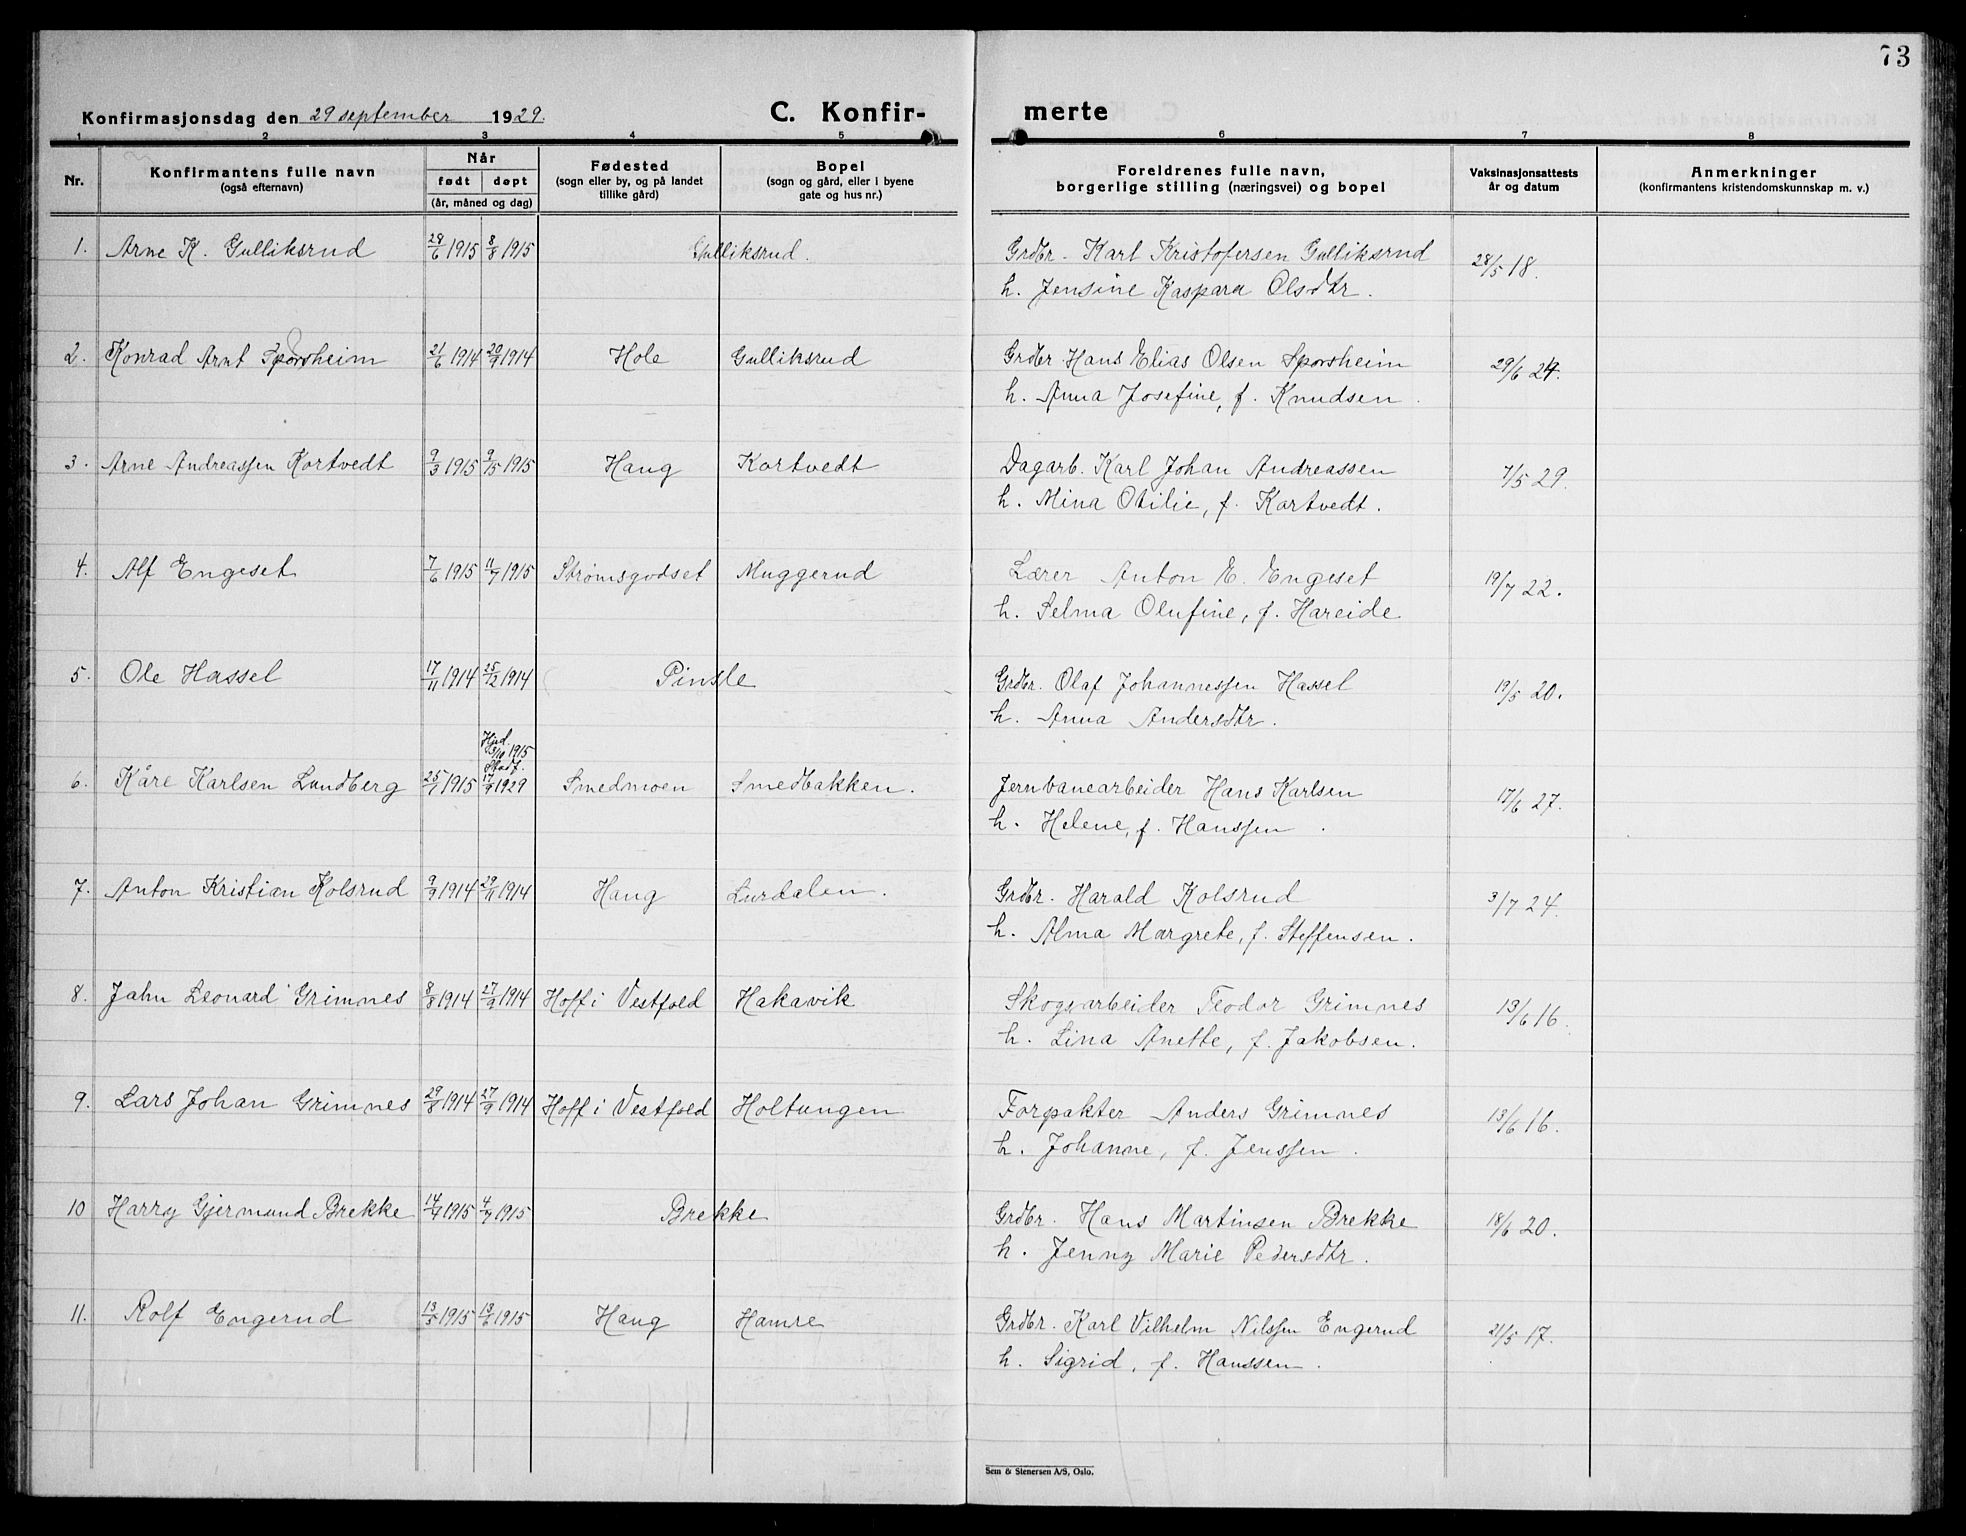 73
Konfirmasjonsdag den 29 september 1929.
C. Konfir-
merte
1 2 3 4 5 6 7 8
Nr.
Konfirmantens fulle navn
(også efternavn)
Når
født døpt
(år, måned og dag)
Fødested
(sogn eller by, og på landet
tillike gård)
Bopel
(sogn og gård, eller i byene
gate og hus nr.)
Foreldrenes fulle navn,
borgerlige stilling (næringsvei) og bopel
Vaksinasjonsattests
år og datum
Anmerkninger
(konfirmantens kristendomskunnskap m. v.)
1. Arne K. Gulliksrud 28/6 1915 8/8 1915 Gulliksrud. Grdbr. Karl Kristofersen Gulliksrud 28/5 18.
h. Jensine Kaspara Olsdtr.
2. Konrad Arnt Sporsheim 21/6 1914 20/9 1914 Hole Gulliksrud Grdbr Hans Elias Olsen Sporsheim 29/6 24.
h. Anna Josefine, f. Knudsen.
3. Arne Andreassen Kortvedt 9/3 1915 9/5 1915 Haug Kortvedt Dagarb. Karl Johan Andreassen 7/5 29.
h. Mina Otilie, f. Kortvedt.
4. Alf Engeset 7/6 1915 11/7 1915 Strømsgodset Muggerud Lærer Anton E. Engeset 19/7 22.
h. Selma Olufine, f. Hareide
5. Ole Hassel 17/11 1914 25/12 1914 Pinsle Grdbr. Olaf Johannessen Hassel 19/5 20.
h. Anna Andersdtr.
Hjd.
3/10 1915
Stadf.
6. Kåre Karlsen Lundberg 25/7 1915 17/9 1929 Smedmoen Smedbakken. Jernbanearbeider Hans Karlsen 17/6 27.
h. Helene, f. Hanssen.
7. Anton Kristian Kolsrud 9/9 1914 29/11 1914 Haug Lurdalen. Grdbr. Harald Kolsrud 3/7 24.
h. Alma Margrete, f. Steffensen.
8. Jahn Leonard Grimnes 8/8 1914 27/9 1914 Hoff i Vestfold Hakavik Skogsarbeider Teodor Grimnes 13/6 16.
h. Lina Anette, f. Jakobsen.
9. Lars Johan Grimnes 29/8 1914 27/9 1914 Hoff i Vestfold Holtungen Forpakter Anders Grimnes 13/6 16.
h. Johanne, f. Jenssen.
10 Harry Gjermund Brekke 1915 4/7 1915 Brekke Grdbr. Hans Martinsen Brekke 18/6 20.
h. Jenny Marie Pedersdtr.
11. Rolf Engerud 13/5 1915 13/6 1915 Haug Hamre Grdbr. Karl Vilhelm Nilssen Engerud 21/5 17.
h. Sigrid, f. Hanssen.
Sem & Stenersen A/S, Oslo.